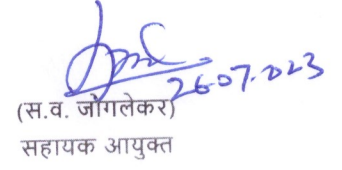 26.07.2023
(स.व. जोगलेकर)
सहायक आयुक्त